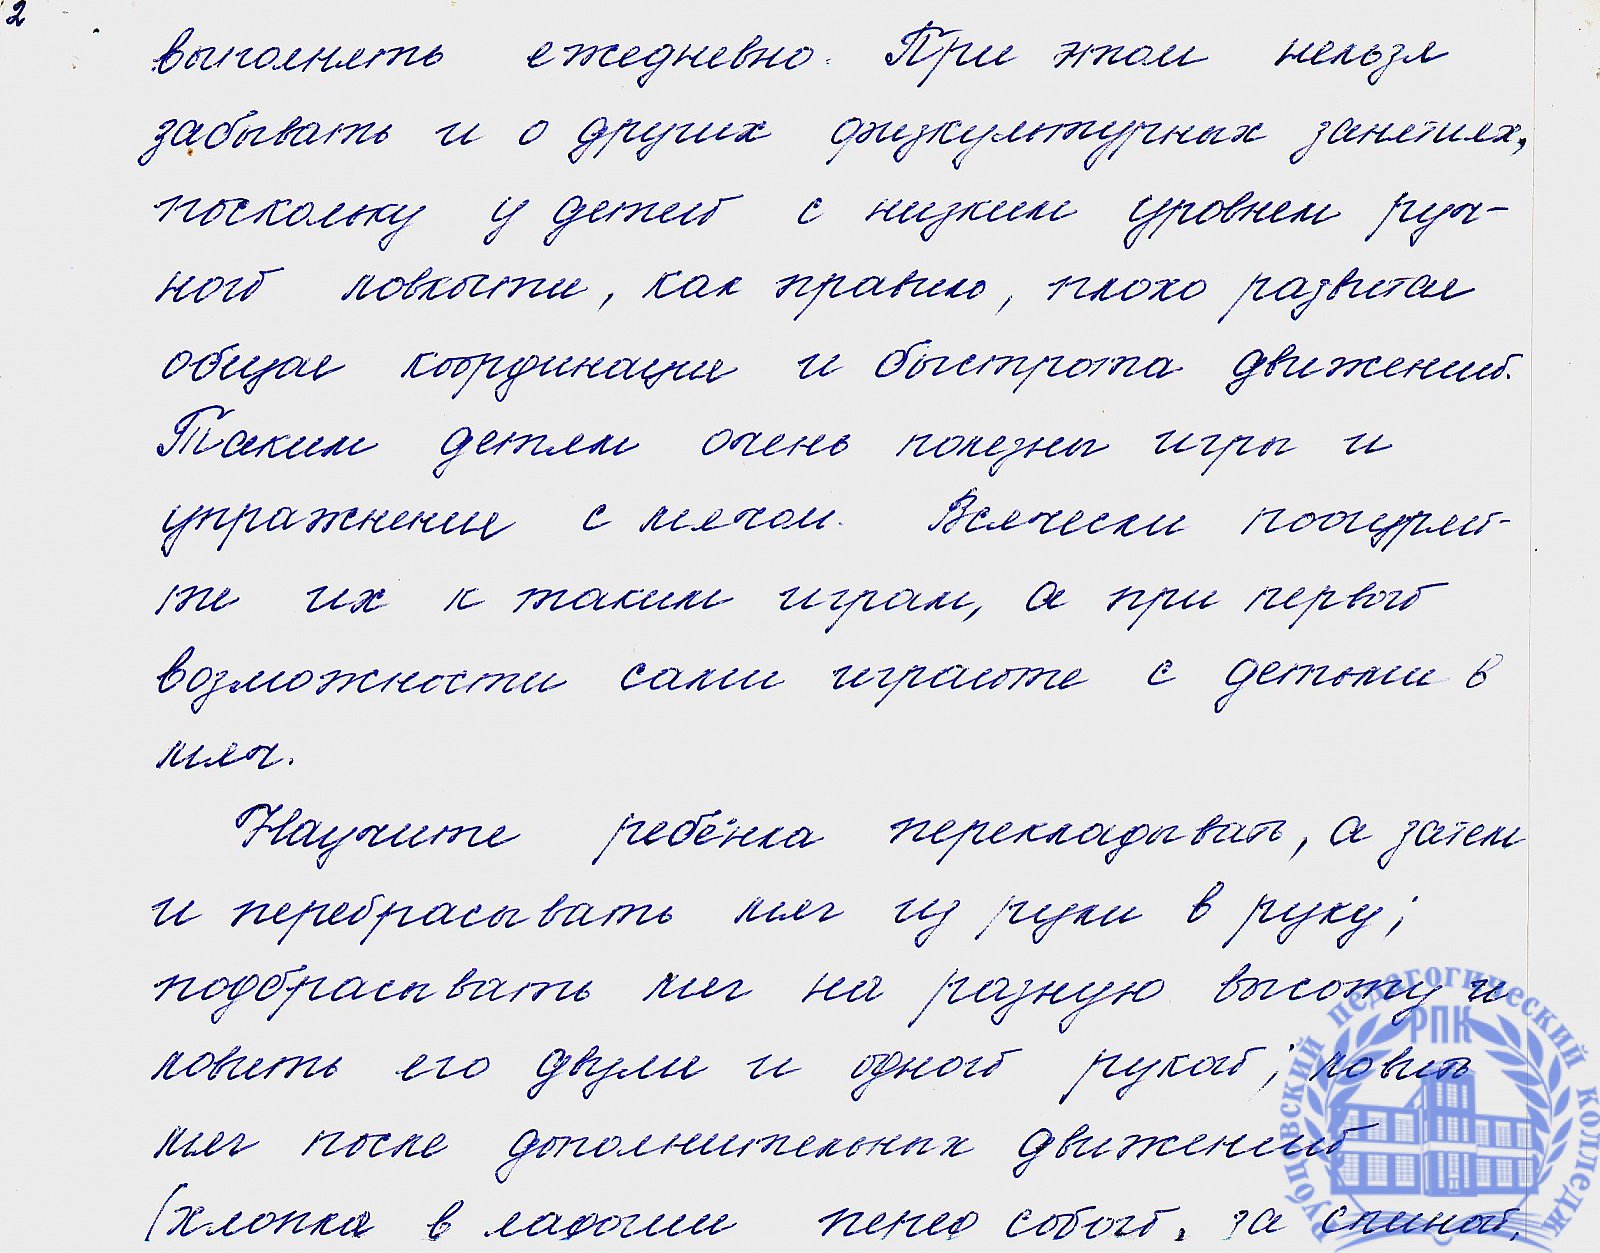 2
выполнять ежедневно. При этом нельзя
забывать и о других физкультурных занятиях,
поскольку у детей с низким уровнем руч-
ной ловкости, как правило, плохо развитая
общая координация и быстрота движений.
Таким детям очень полезны игры и
упражнения с мячом. Всячески поощряй-
те их к таким играм, а при первой
возможности сами играйте с детьми в
мяч.
Научите ребёнка перекладывать, а затем
и перебрасывать мяч из руки в руку;
подбрасывать мяч на разную высоту и
ловить его двумя и одной рукой; ловить
мяч после дополнительных движений
(хлопка в ладоши перед собой, за спиной,
Рубцовский педагогический колледж
РПК